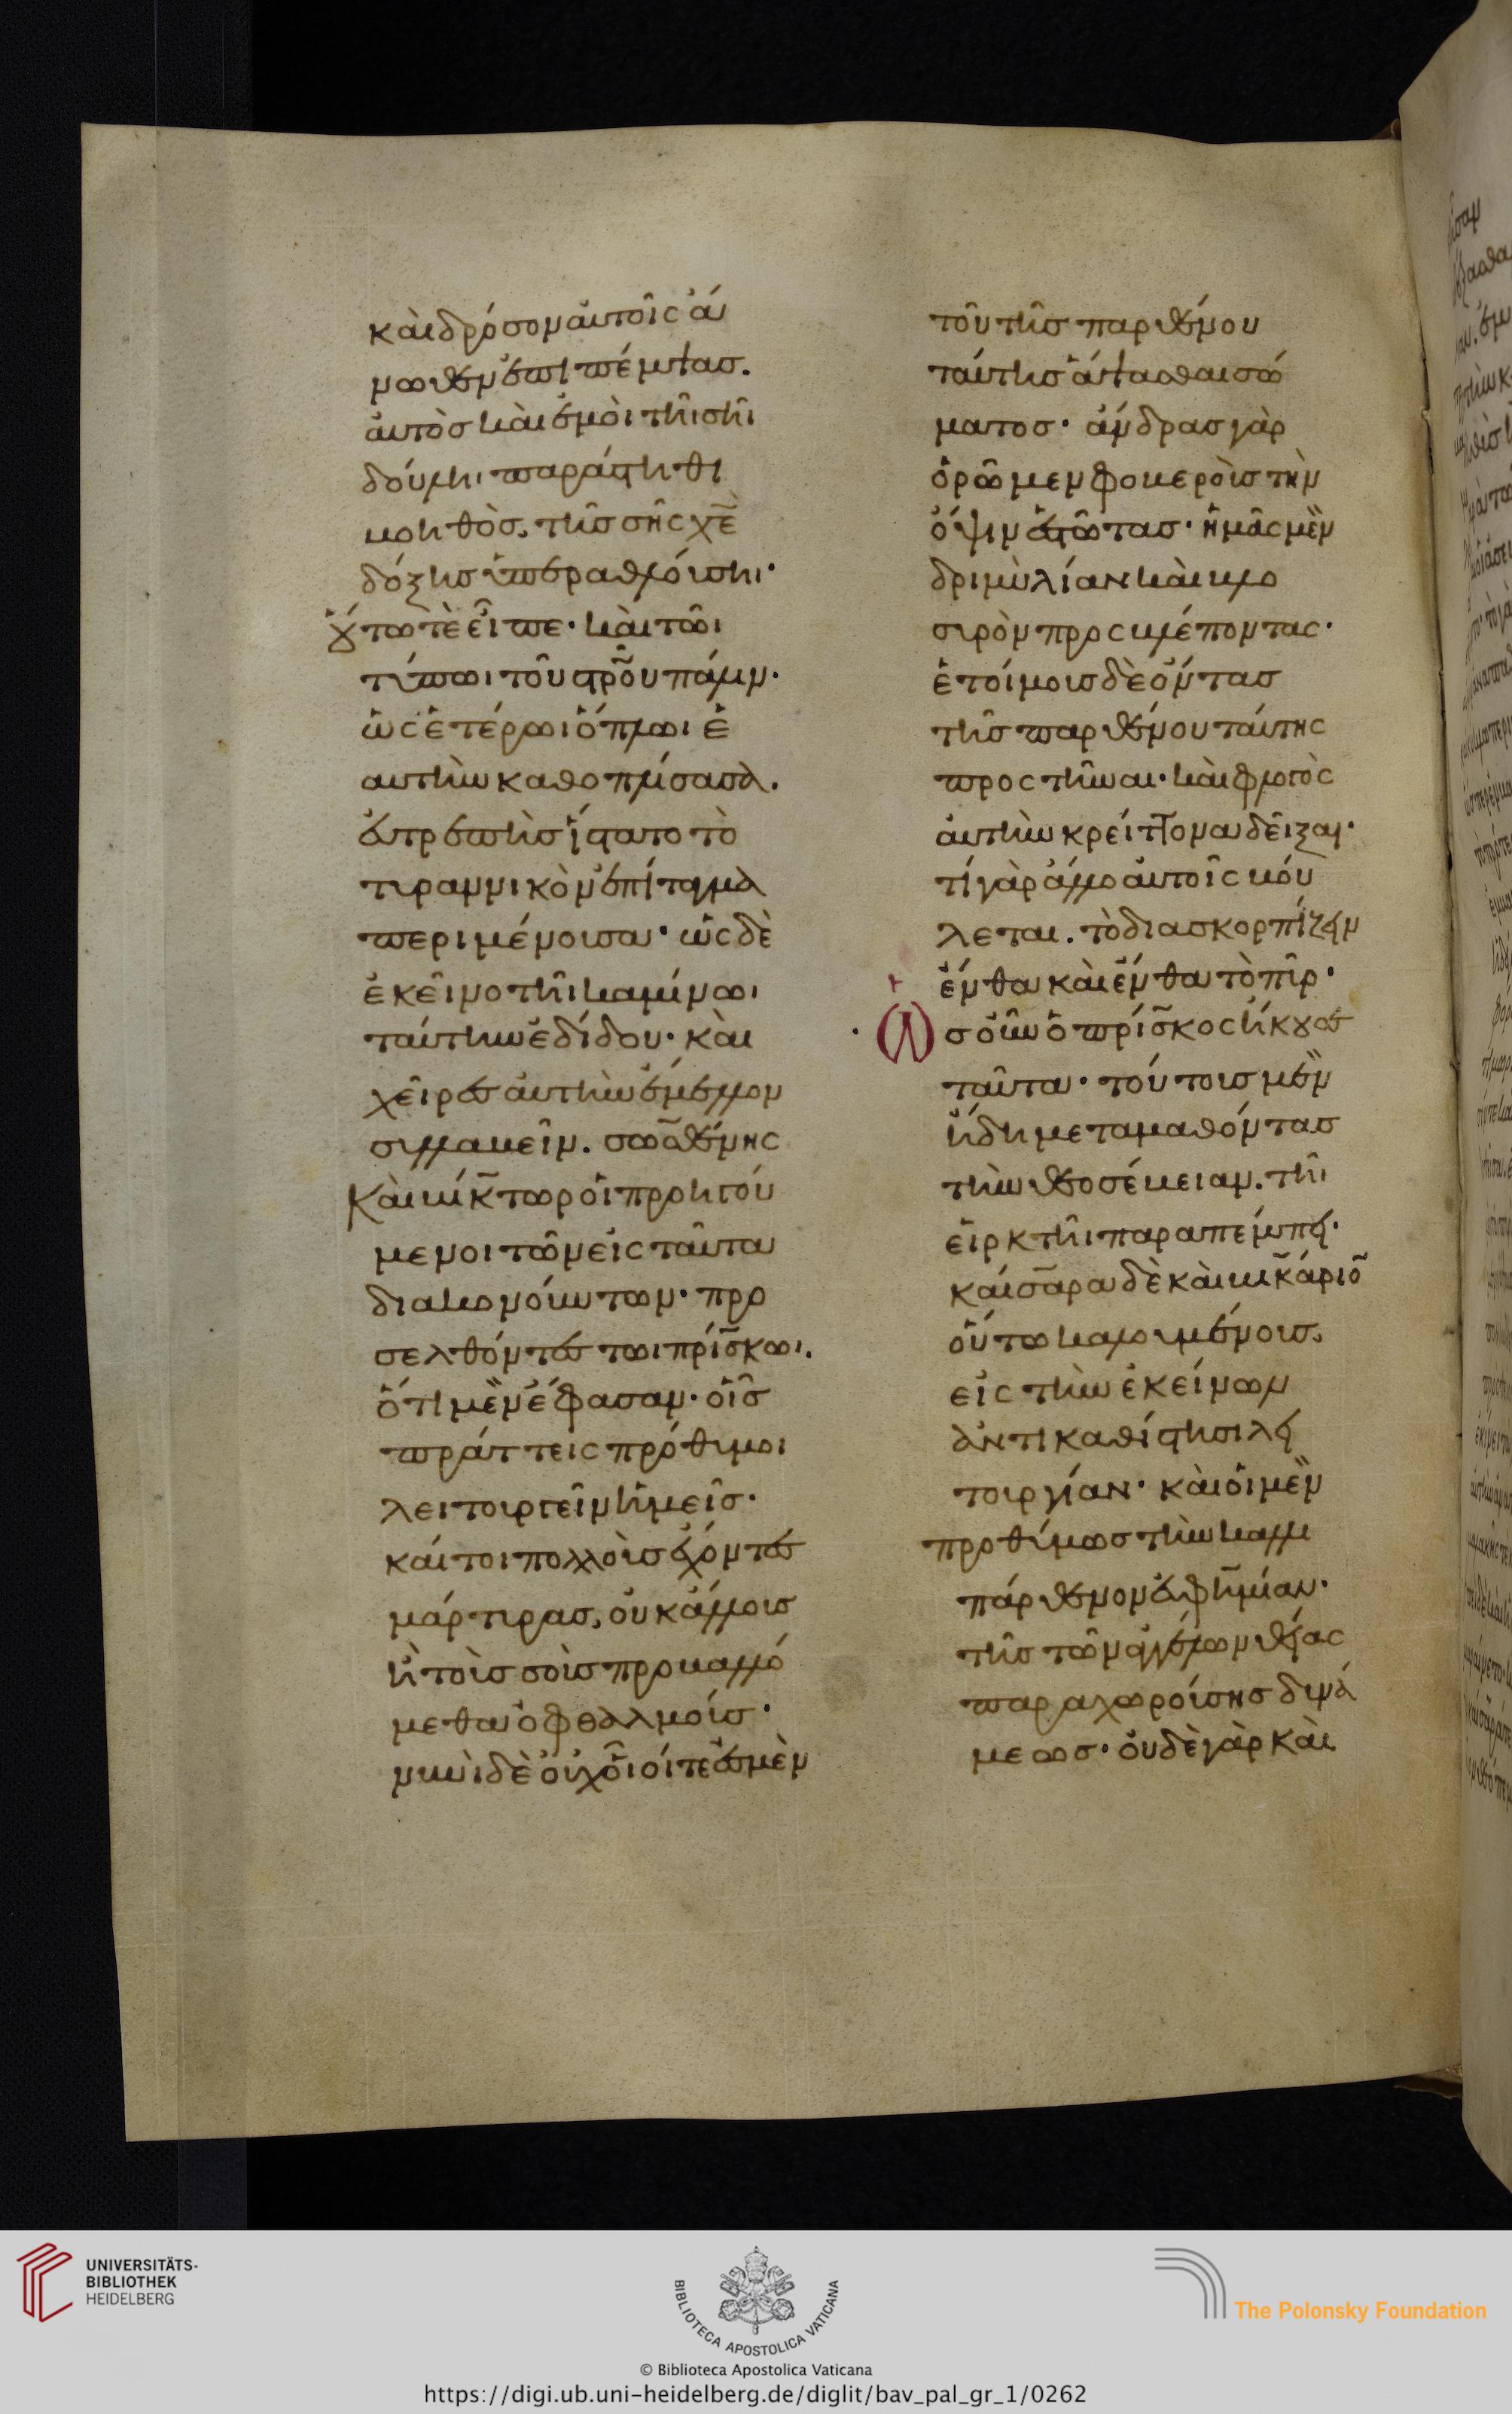 καὶ δρόσον αὐτοῖς ἄ
νωθεν ἐπιπέμψας.
αὐτὸς καὶ ἐμοὶ τῆι σῆι
δούληι παράστηθι
βοηθὸς, τῆς σῆς χ̅ε̅
δόξης ὑπεραθλούσηι·
οὕτω τὲ εἶπε· καὶ τῶι
τύπωι τοῦ στρ̅οῦ πάλιν·
ὡς ἑτέρωι ὅπλωι ἑ
αυτὴν καθοπλίσασα.
εὐτρεπὴς ἵστατο τὸ
τυραννικὸν ἐπίταγμα
περιμένουσα· ὡς δὲ
ἐκεῖνο τῆι καμίνωι
ταύτην ἐδίδου· καὶ
χεῖρες αὐτὴν ἔμελλον
συλλαβεῖν. σωσθένης
καὶ βίκτωρ οἱ προηγού
μενοι τῶν εἰς ταῦτα
διακονούντων· προ
σελθόντες τῶι πρίσκωι.
ὅτι μὲν ἔφασαν· οἷς
πράττεις πρόθυμοι
λειτουργεῖν ἡμεῖς·
καίτοι πολλοὺς ἔχοντες
μάρτυρας, οὐκ ἄλλους
ἢ τοὺς σοὺς προβαλλό
μεθα ὀφθαλμούς·
νυνὶ δὲ οὐχ οἷοί τε ἐσμὲν
τοῦ τῆς παρθένου
ταύτης ἅψασθαι σώ
ματος· ἄνδρας γὰρ
ὁρῶμεν φοβεροὺς τὴν
ὄψιν ἑστῶτας· ἡμᾶς μὲν
δριμὺ λίαν καὶ βλο
συρὸν προςβλέποντας·
ἑτοίμους δὲ ὄντας
τῆς παρθένου ταύτης
προςτῆναι· καὶ φλογὸς
αὐτὴν κρείττονα δεῖξαι·
τί γὰρ ἄλλο αὐτοῖς βού
λεται. τὸ διασκορπίζειν
ἔνθα καὶ ἔνθα τὸ πῦρ·
Ὡς οὖν ὁ πρίσκος ἤκουσε
ταῦτα· τούτους μὲν
ἤδη μεταμαθόντας
τὴν θεοσέβειαν. τῆι
εἱρκτῆι παραπέμπει·
καίσαρα δὲ καὶ βάριον
οὕτω καλουμένους,
εἰς τὴν ἐκείνων
ἀντικαθίστησι λει
τουργίαν· καὶ οἱ μὲν
προθύμως τὴν καλλι
πάρθενον εὐφημίαν·
τῆς τῶν ἀγγέλων θείας
παραχωρούσης δυνά
μεως· οὐδὲ γὰρ καὶ
UNIVERSITÄTS-
BIBLIOTHEK
HEIDELBERG
BIBLIOTECA APOSTOLICA VATICANA
The Polonsky Foundation
© Biblioteca Apostolica Vaticana
https://digi.ub.uni-heidelberg.de/diglit/bav_pal_gr_1/0262